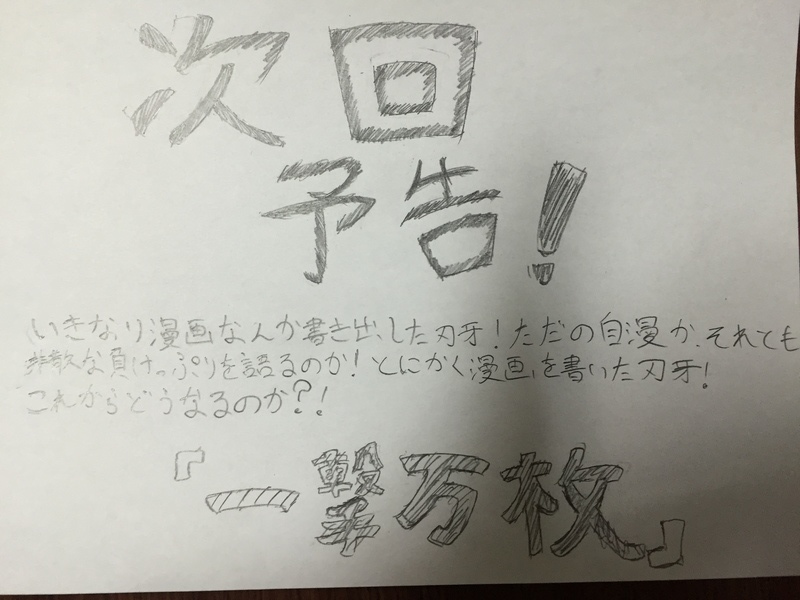 次回
予告!
いきなり漫画なんか書き出した刃牙!ただの自漫か、それとも
非散な負けっぷりを語るのか!とにかく漫画を書いた刃牙!
これからどうなるのか?!
『一撃万枚』